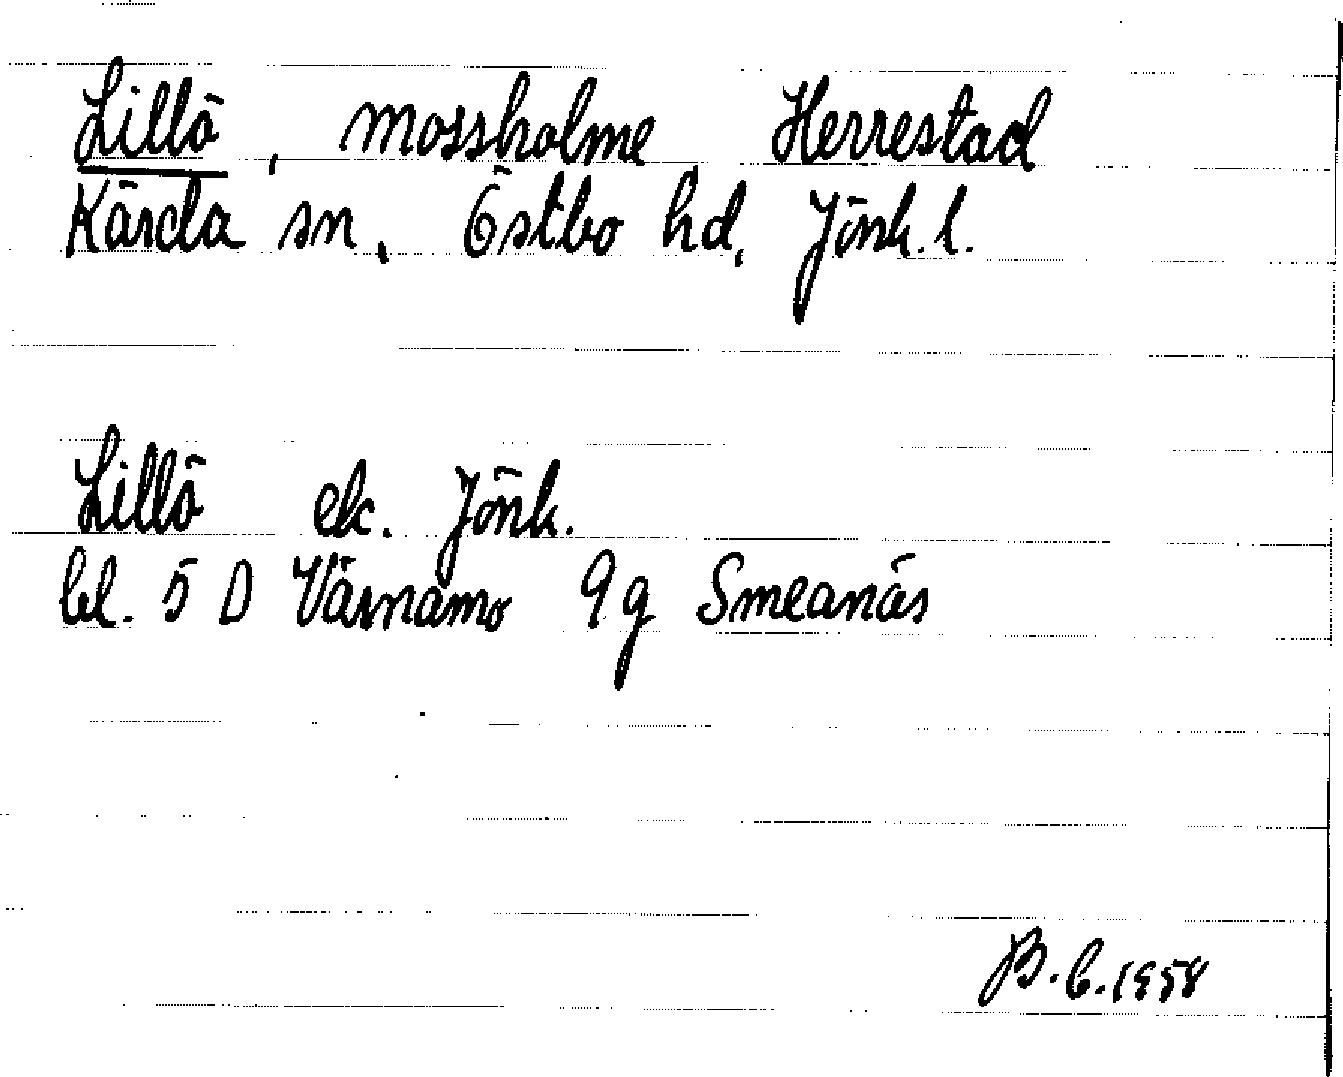 Lillö, mossholme Herrestad
Kärda sn, Östbo hd, Jönk. l.
Lillö ek. Jönk.
bl. 5 D Värnamo 9g Smeanäs
B. 6. 1958